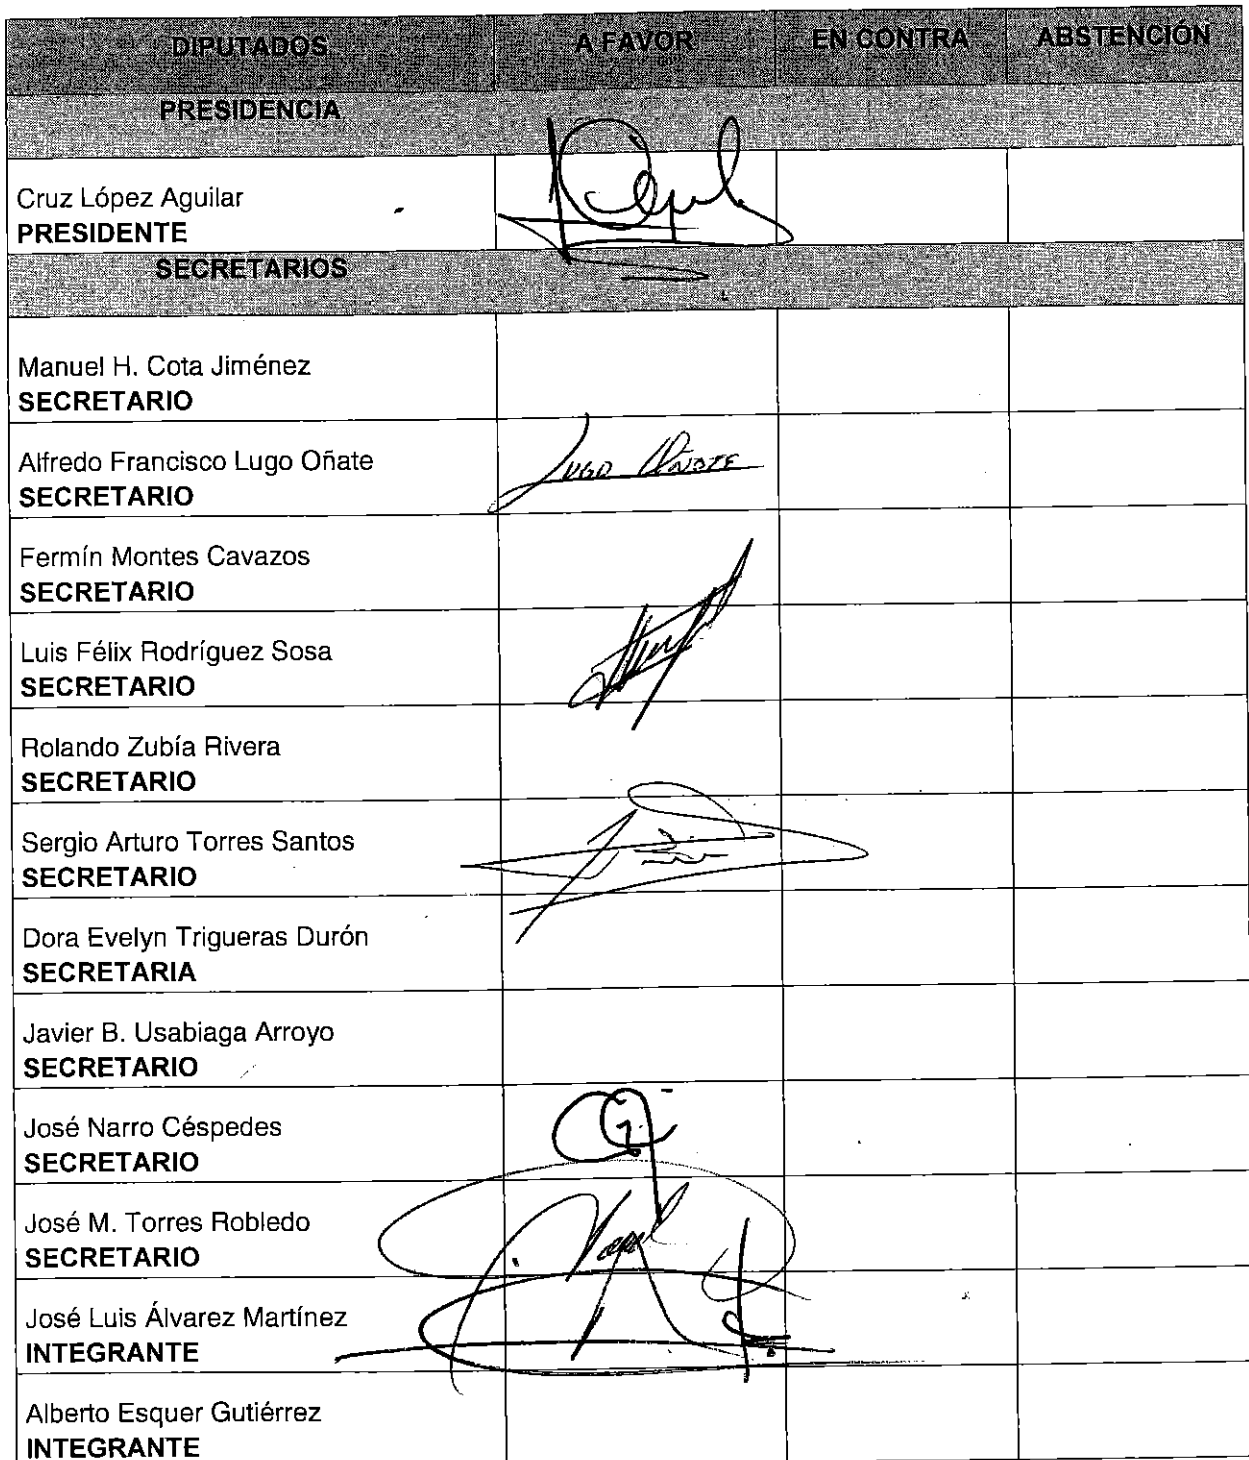 DIPUTADOS A FAVOR EN CONTRA ABSTENCIÓN
PRESIDENCIA
Cruz López Aguilar
PRESIDENTE
SECRETARIOS
Manuel H. Cota Jiménez
SECRETARIO
Alfredo Francisco Lugo Oñate
SECRETARIO
Lugo Oñate
Fermín Montes Cavazos
SECRETARIO
Luis Félix Rodríguez Sosa
SECRETARIO
Rolando Zubía Rivera
SECRETARIO
Sergio Arturo Torres Santos
SECRETARIO
Dora Evelyn Trigueras Durón
SECRETARIA
Javier B. Usabiaga Arroyo
SECRETARIO
José Narro Céspedes
SECRETARIO
José M. Torres Robledo
SECRETARIO
José Luis Álvarez Martínez
INTEGRANTE
Alberto Esquer Gutiérrez
INTEGRANTE